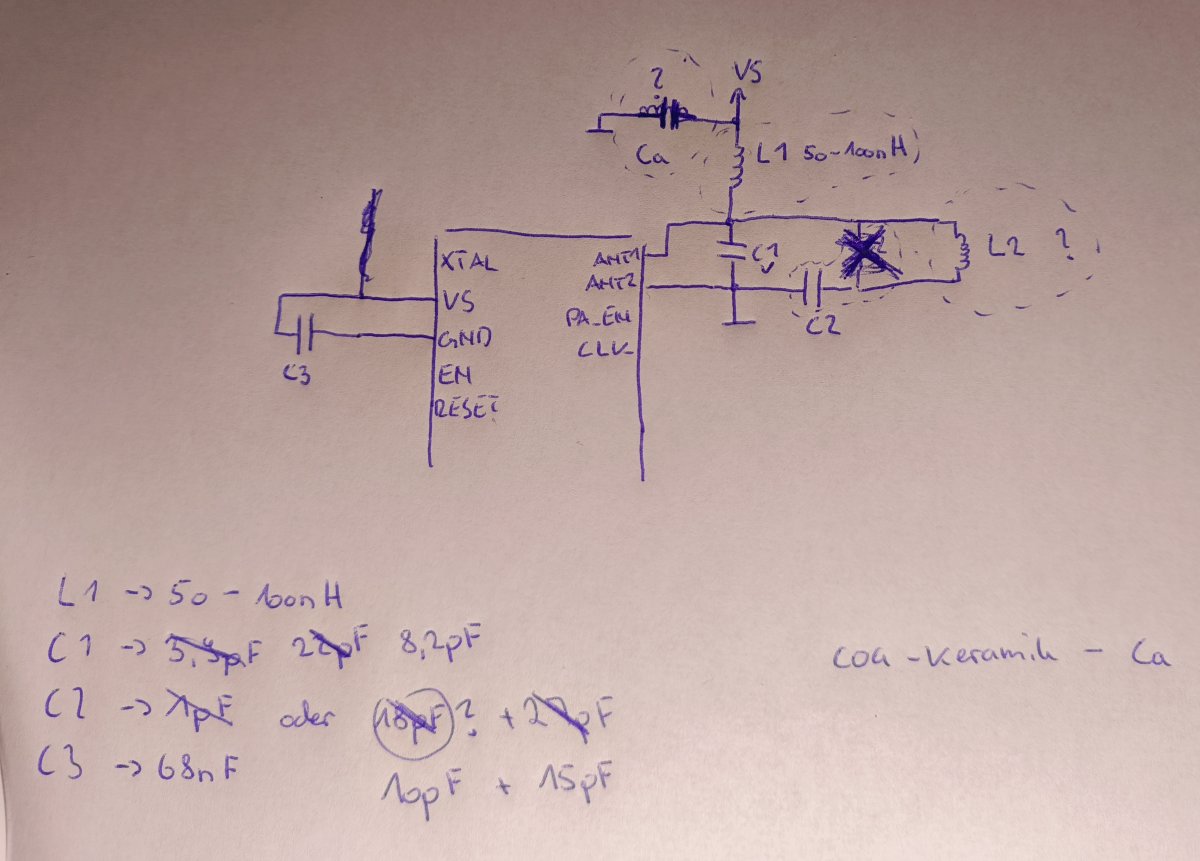 ?
VS
Ca
L1 50-100nH
XTAL
ANT1
C1
L2 ?
VS
ANT2
GND
PA_EN
C2
C3
CLK
EN
RESET
L1 → 50 - 100nH
C1 → 3,9pF 22pF 8,2pF
C2 → 1pF oder 18pF? + 27pF
C3 → 68nF
10pF + 15pF
COG - Keramik - Ca